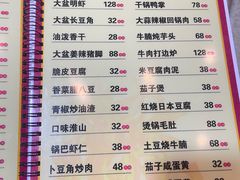 大盆明虾 128
大盆长豆角 32
油泼香干 28
大盆姜辣猪脚 88
脆皮豆腐 32
香菜腊八豆 28
青椒炒油渣 32
口味淮山 32
锅巴虾仁 38
卜豆角炒肉 48
干锅鸭掌 78
大蒜辣椒回锅肉
牛腩炖芋头 68
牛肉打边炉 128
米豆腐肉泥 38
茄子煲 38
红烧日本豆腐 38
煲锅毛肚 88
土豆烧牛腩 58
茄子咸蛋黄